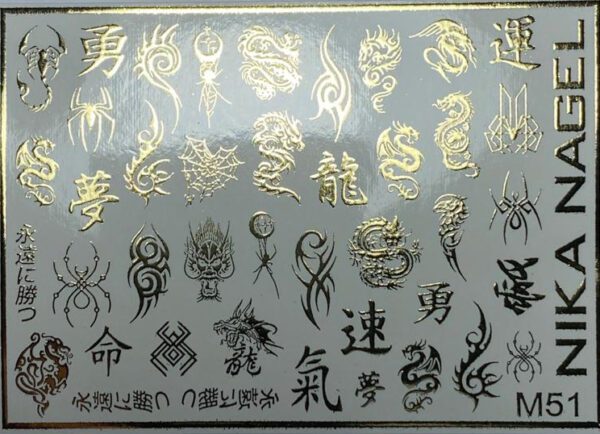 勇
運
夢
龍
永遠に勝つ
勇
速
命
龍
氣
夢
永遠に勝つ
永遠に勝つ
NIKA NAGEL
M51